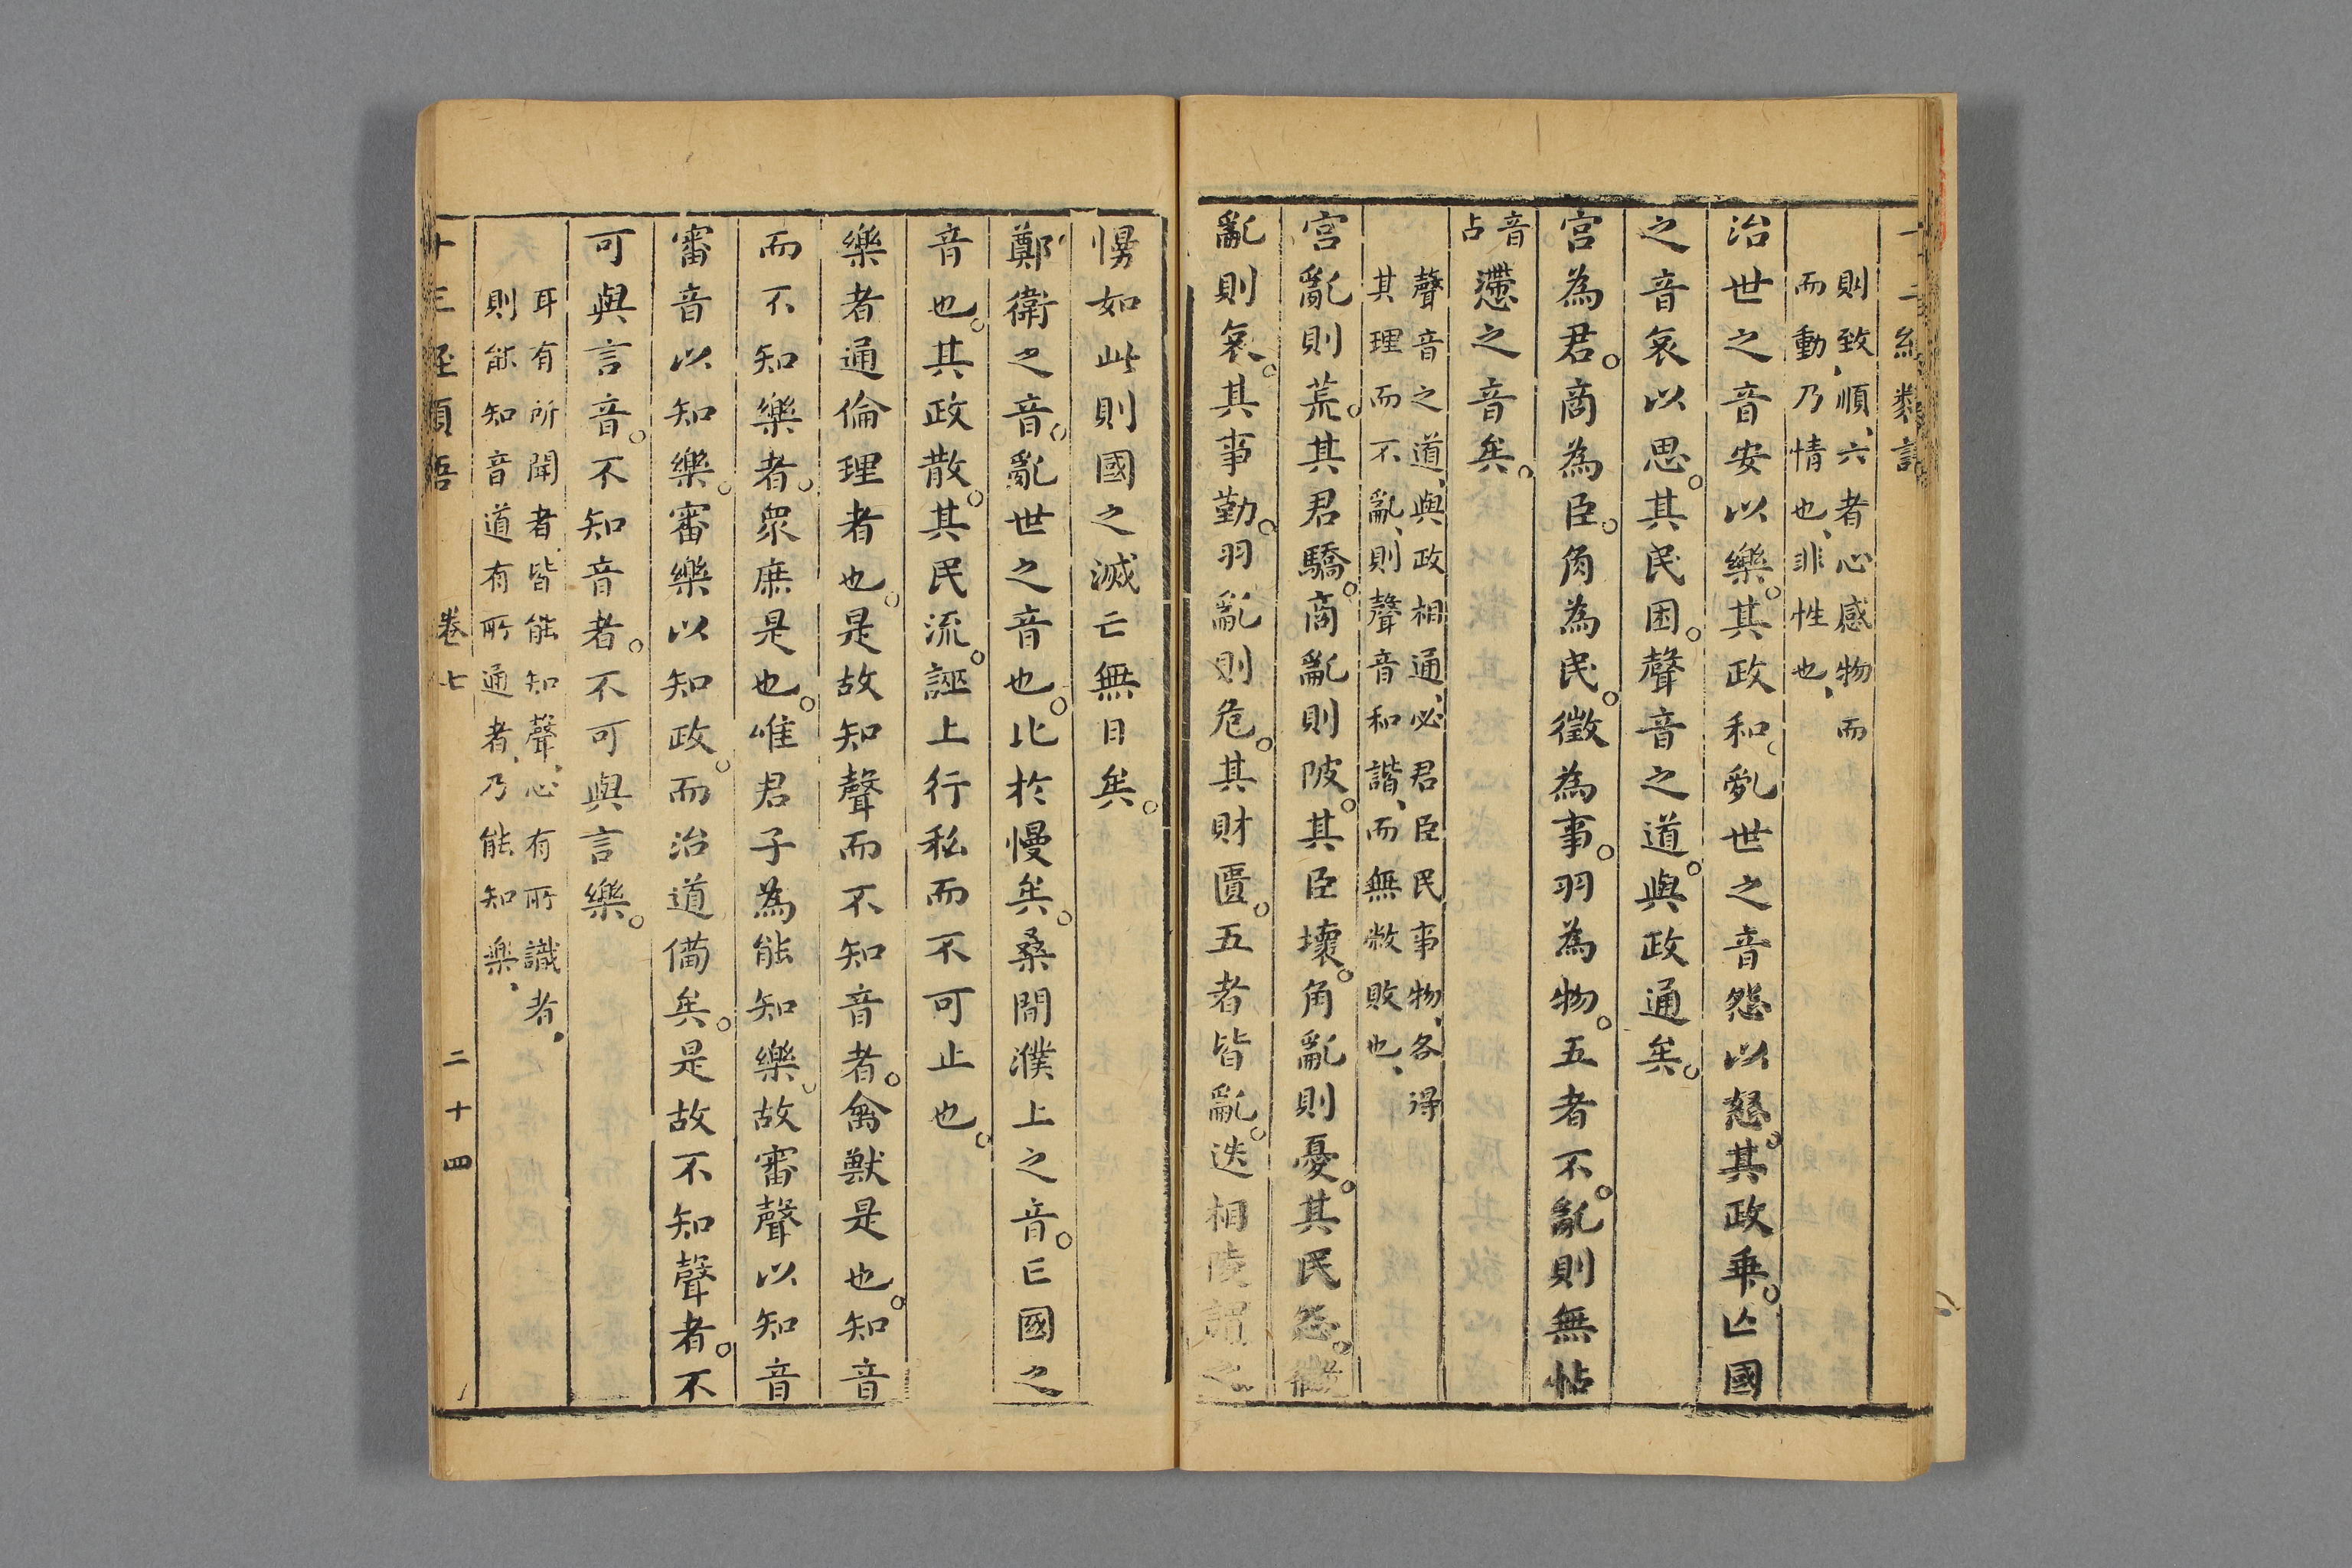 則致順、六者心感物而
而動、乃情也、非性也、
治世之音安以樂。其政和。亂世之音怨以怒。其政乖。亾國
之音哀以思。其民困。聲音之道。與政通矣。
宮為君。商為臣。角為民。徵為事。羽為物。五者不亂。則無怗
音占
懘之音矣。
聲音之道、與政相通、必君臣民事物、各得
其理而不亂、則聲音和諧、而無敝敗也、
宮亂則荒。其君驕。商亂則陂。其臣壞。角亂則憂。其民怨。徵
亂則哀。其事勤。羽亂則危。其財匱。五者皆亂。迭相陵謂之
慢如此則國之滅亡無日矣。
鄭衛之音。亂世之音也。比於慢矣。桑間濮上之音。亡國之
音也。其政散。其民流。誣上行私而不可止也。
樂者通倫理者也。是故知聲而不知音者。禽獸是也。知音
而不知樂者。眾庶是也。唯君子為能知樂。故審聲以知音
審音以知樂。審樂以知政。而治道備矣。是故不知聲者。不
可與言音。不知音者。不可與言樂。
耳有所聞者、皆能知聲、心有所識者、
則能知音道有所通者、乃能知樂、
卷七 二十四